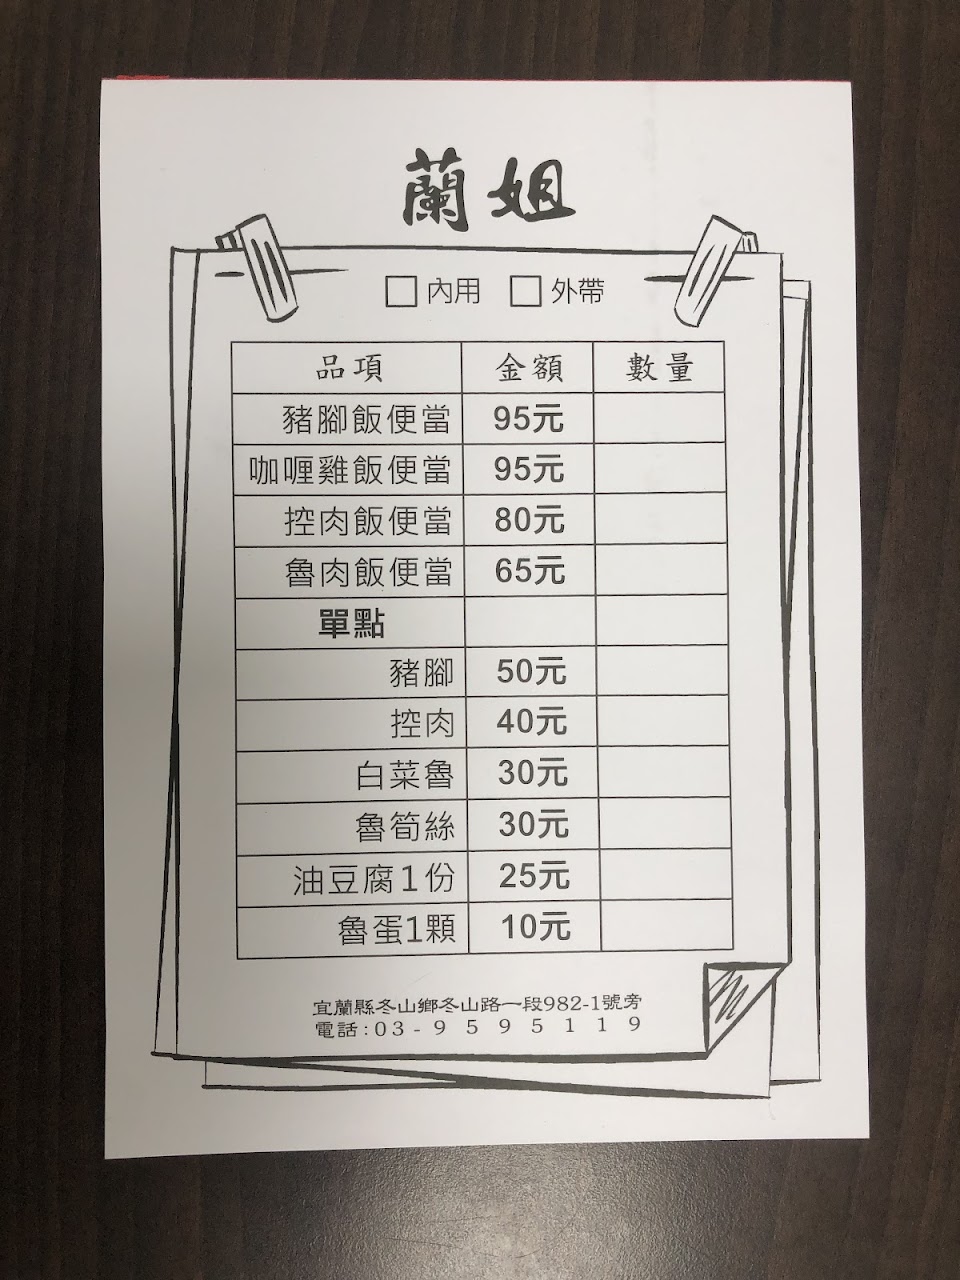 蘭姐
□內用 □外帶
品項 金額 數量
豬腳飯便當 95元
咖喱雞飯便當 95元
控肉飯便當 80元
魯肉飯便當 65元
單點
豬腳 50元
控肉 40元
白菜魯 30元
魯筍絲 30元
油豆腐1份 25元
魯蛋1顆 10元
宜蘭縣冬山鄉冬山路一段982-1號旁
電話:03-9595119